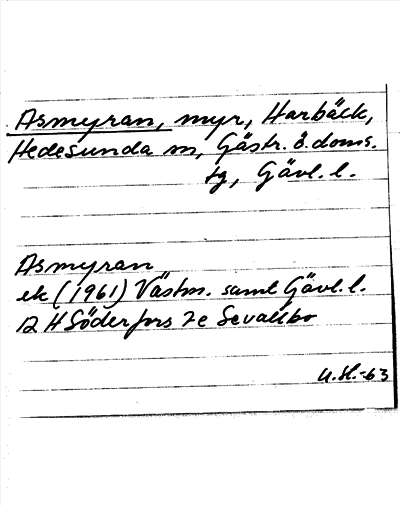 Asmyran, myr, Harbäck,
Hedesunda sn, Gästr. ö. doms.
tg, Gävl. l.
Asmyran
ek (1961) Västm. samt Gävl. l.
12 H Söderfors 7e Sevallbo
U.H.-63